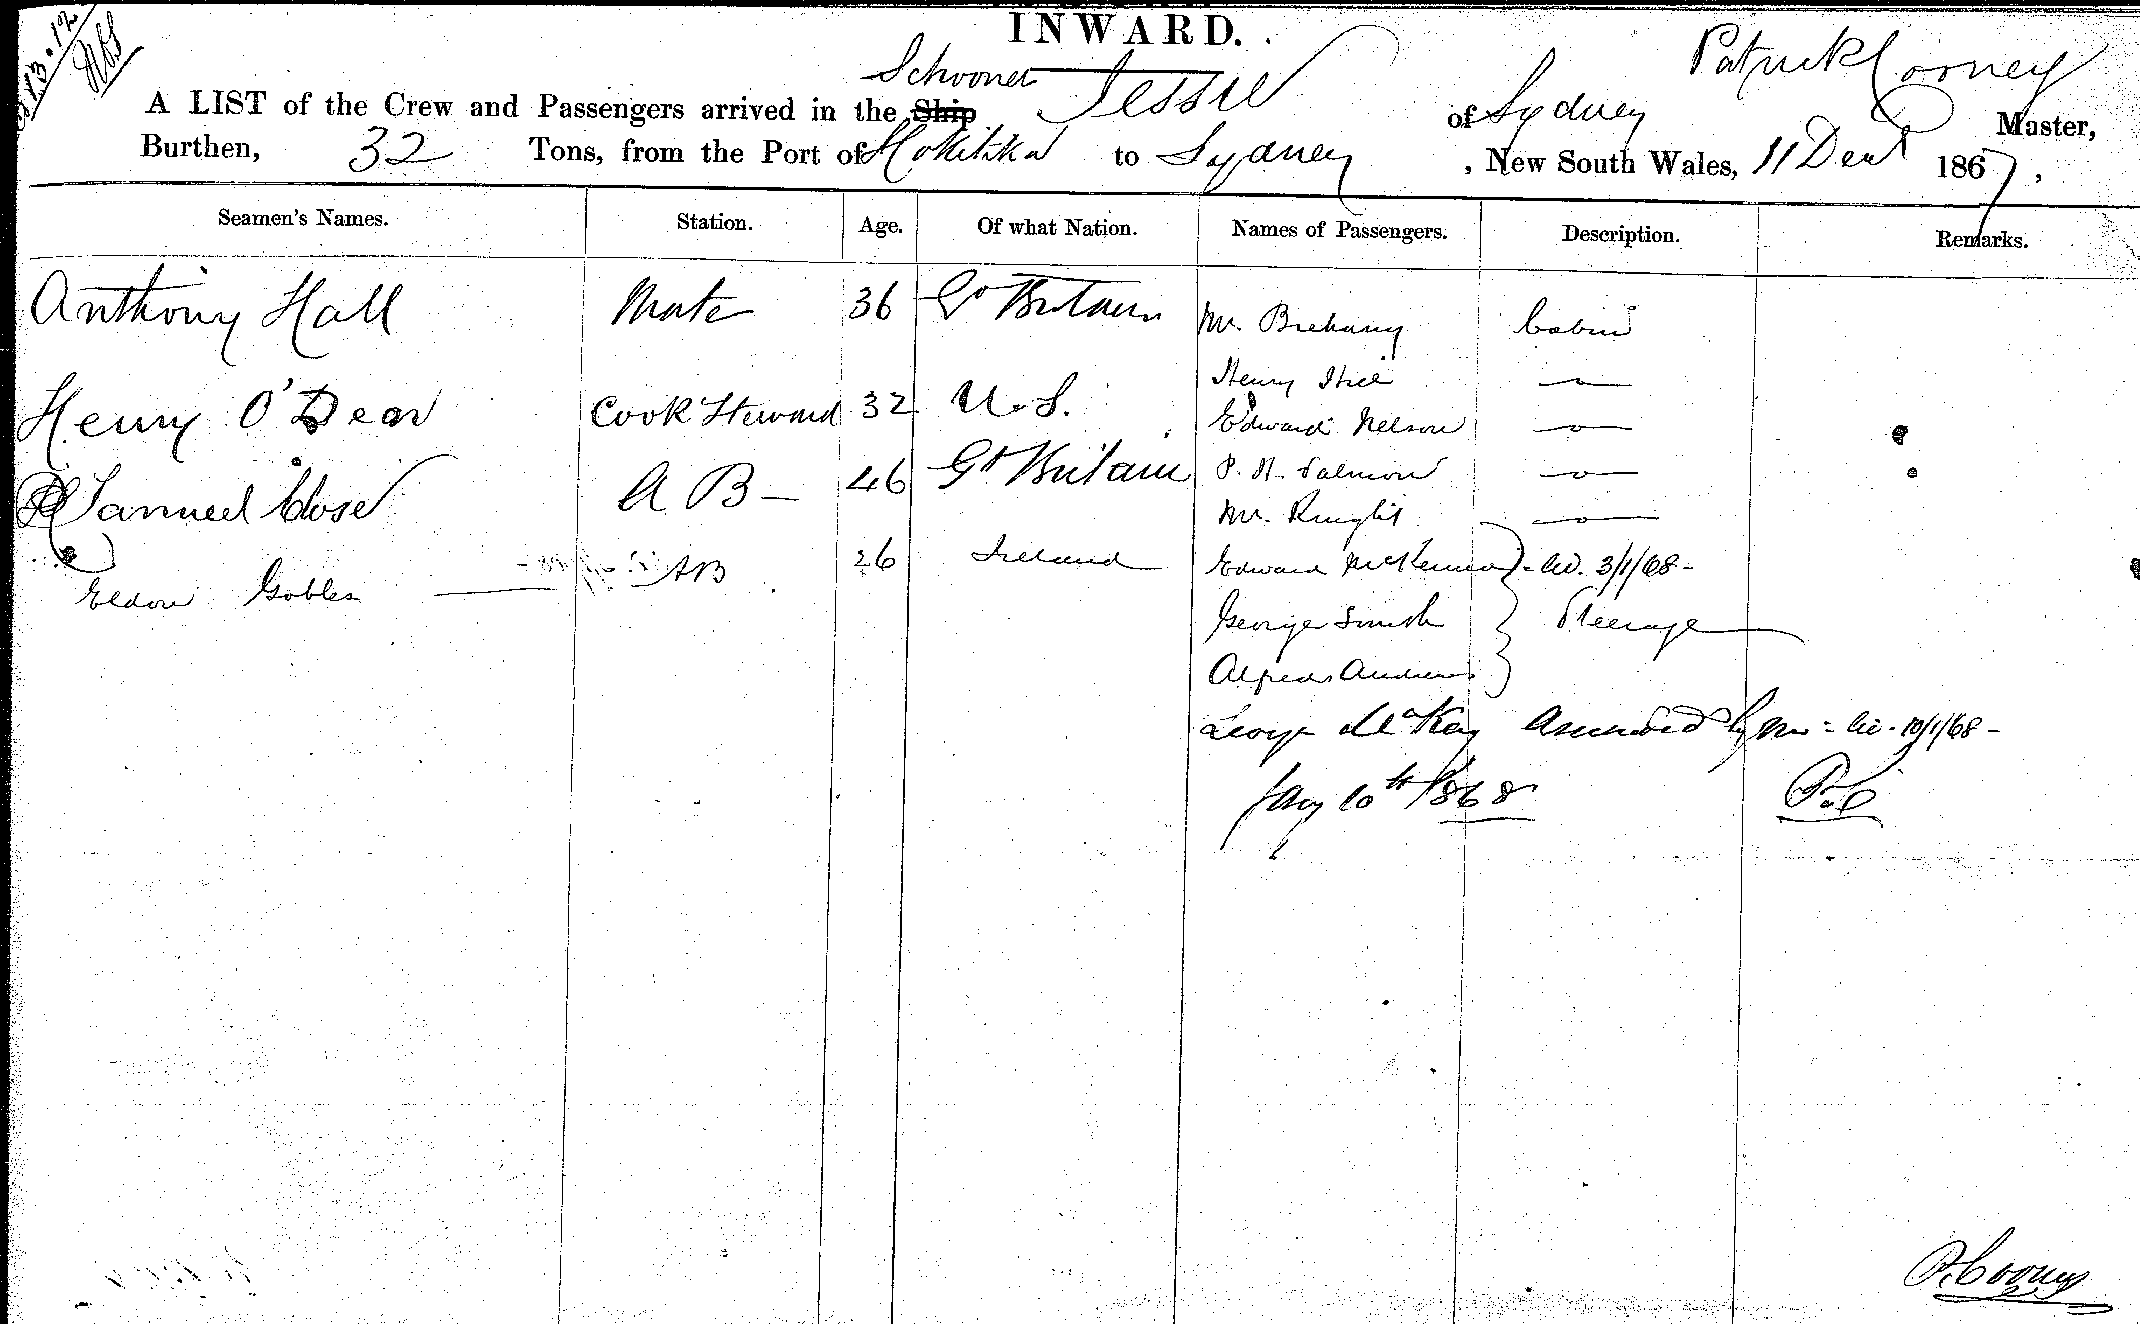 INWARD.
Schooner Patrick Cooney
A LIST of the Crew and Passengers arrived in the Ship Jessie of Sydney Master,
Burthen, 32 Tons, from the Port of Hokitika to Sydney , New South Wales, 11 Decr 1867,
Seamen's Names. Station. Age. Of what Nation. Names of Passengers. Description. Remarks.
Anthony Hall Mate 36 Gt Britain Mr. Cabin
Henry — " —
Henry O'Dear Cook Steward 32 U.S. Edward Nelson — " —
Samuel Close A B — 46 Gt Britain P. H. Salmon — " —
Mr. Knight — " —
Eldon Gobles AB 26 Ireland Edward McKenna 3/1/68 -
George Smith Steerage
Alfred Andrews
George McKay Amended by me 10/1/68 -
Jany 10th 1868 P.C
P. Cooney